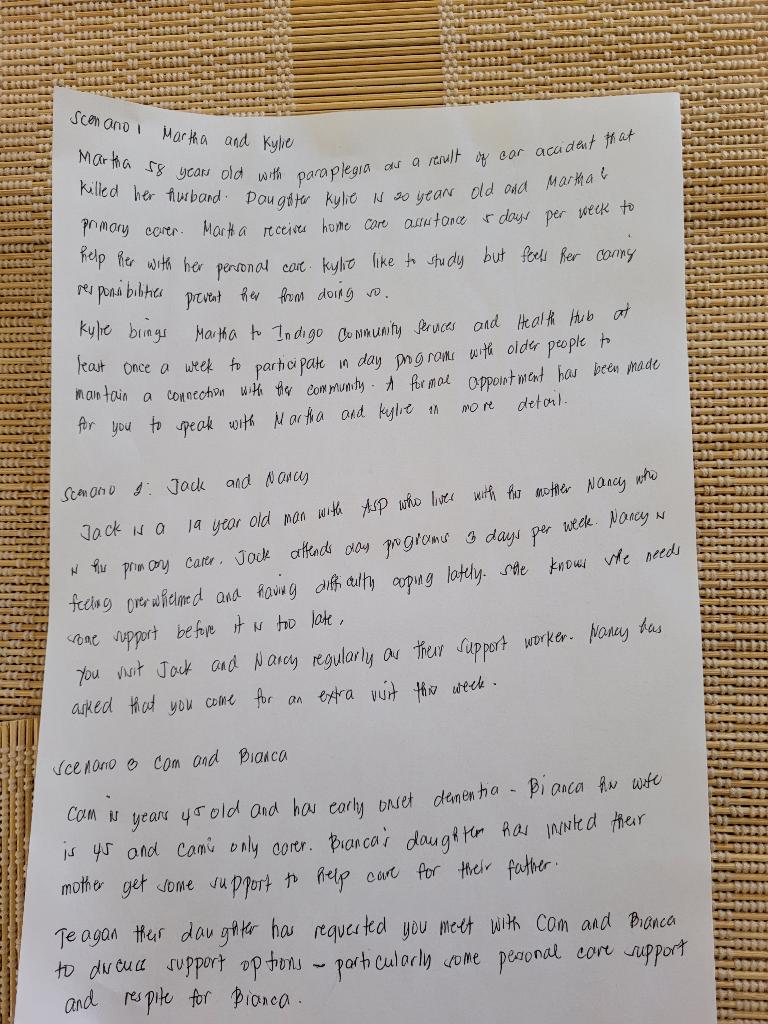 Scenario 1 Martha and Kylie
Martha 58 years old with paraplegia as a result of car accident that
killed her husband. Daughter Kylie is 20 years old and Martha's
primary carer. Martha receives home care assistance 5 days per week to
help her with her personal care. Kylie like to study but feels her caring
responsibilities prevent her from doing so.
Kylie brings Martha to Indigo Community Services and Health Hub at
least once a week to participate in day programs with older people to
maintain a connection with her community. A formal appointment has been made
for you to speak with Martha and Kylie in more detail.
Scenario 2: Jack and Nancy
Jack is a 19 year old man with ASD who lives with his mother Nancy who
is his primary carer. Jack attends day programs 3 days per week. Nancy is
feeling overwhelmed and having difficulty coping lately. She knows she needs
some support before it is too late.
You visit Jack and Nancy regularly as their support worker. Nancy has
asked that you come for an extra visit this week.
Scenario 3 Cam and Bianca
Cam is years 45 old and has early onset dementia - Bianca his wife
is 45 and Cam's only carer. Bianca's daughter has insisted their
mother get some support to help care for their father.
Teagan their daughter has requested you meet with Cam and Bianca
to discuss support options - particularly some personal care support
and respite for Bianca.